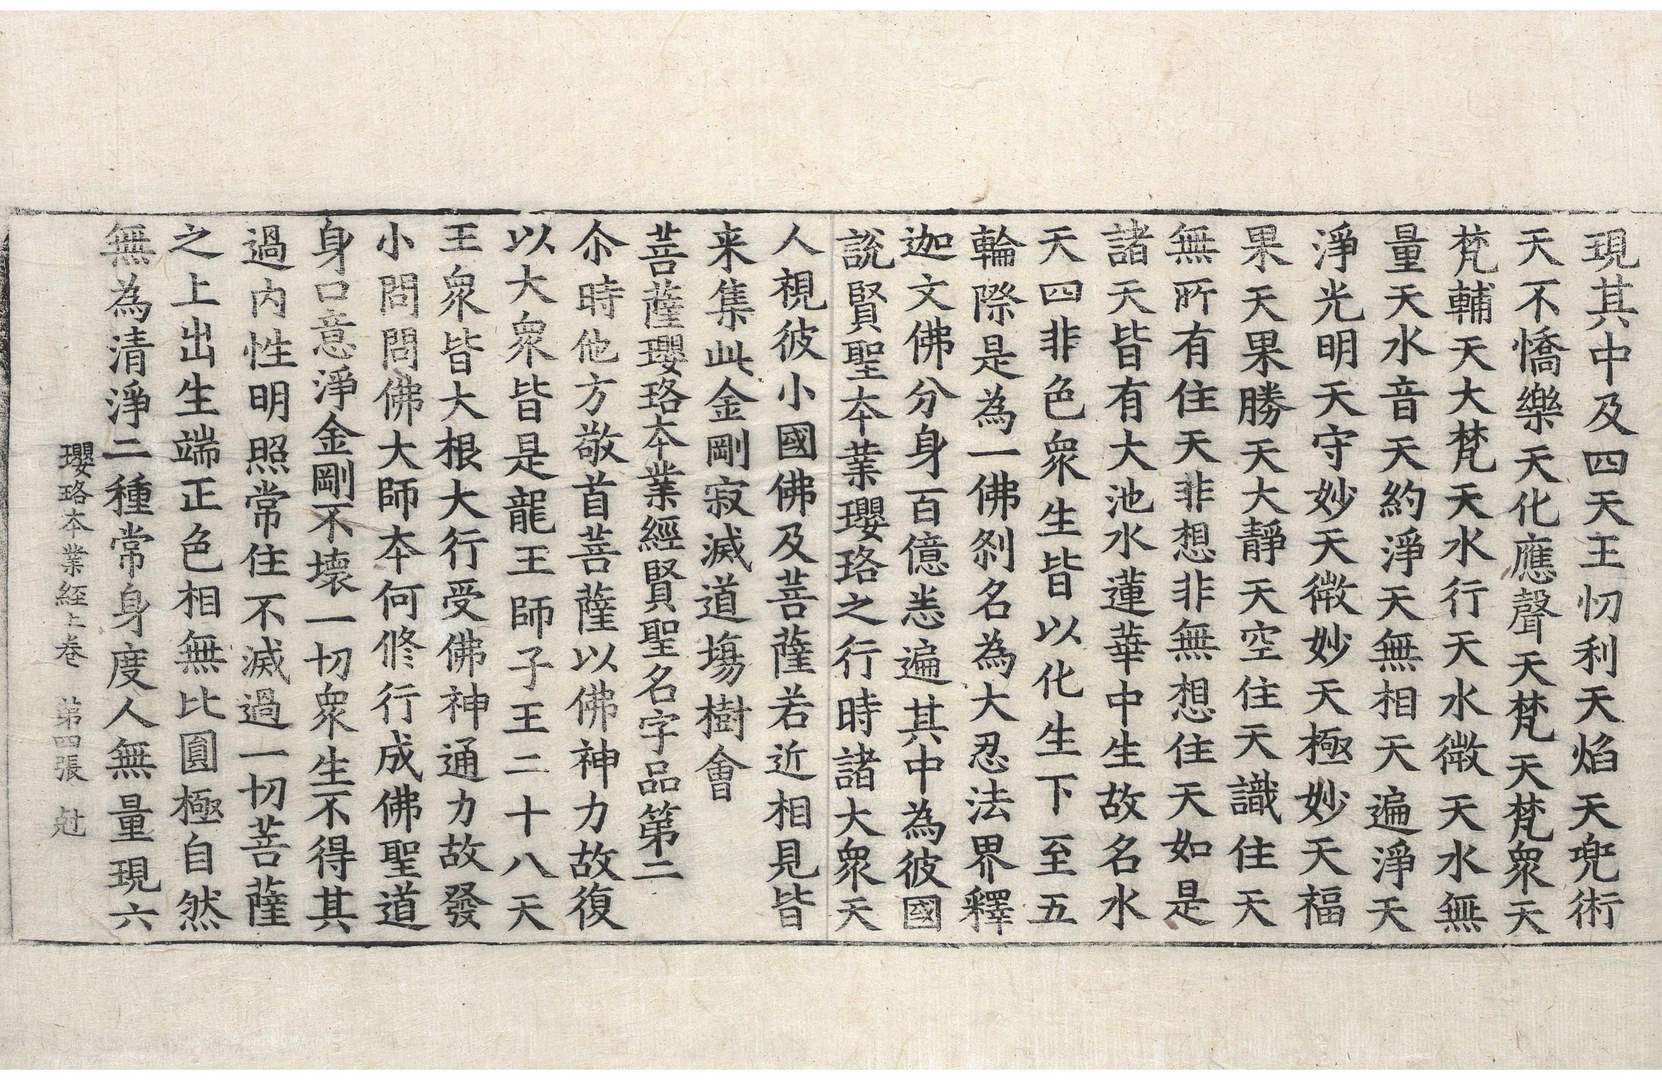 現其中及四天王忉利天焰天兜術
天不憍樂天化應聲天梵天梵衆天
梵輔天大梵天水行天水微天水無
量天水音天約淨天無相天遍淨天
淨光明天守妙天微妙天極妙天福
果天果勝天大靜天空住天識住天
無所有住天非想非無想住天如是
諸天皆有大池水蓮華中生故名水
天四非色衆生皆以化生下至五
輪際是為一佛刹名為大忍法界釋
迦文佛分身百億悉遍其中為彼國
說賢聖夲業瓔珞之行時諸大衆天
人視彼小國佛及菩薩若近相見皆
来集此金剛寂滅道塲樹會
菩薩瓔珞夲業經賢聖名字品第二
尒時他方敬首菩薩以佛神力故復
以大衆皆是龍王師子王二十八天
王衆皆大根大行受佛神通力故發
小問問佛大師夲何修行成佛聖道
身口意淨金剛不壞一切衆生不得其
過內性明照常住不滅過一切菩薩
之上出生端正色相無比圓極自然
無為清淨二種常身度人無量現六
瓔珞夲業経上卷　第四張　尅